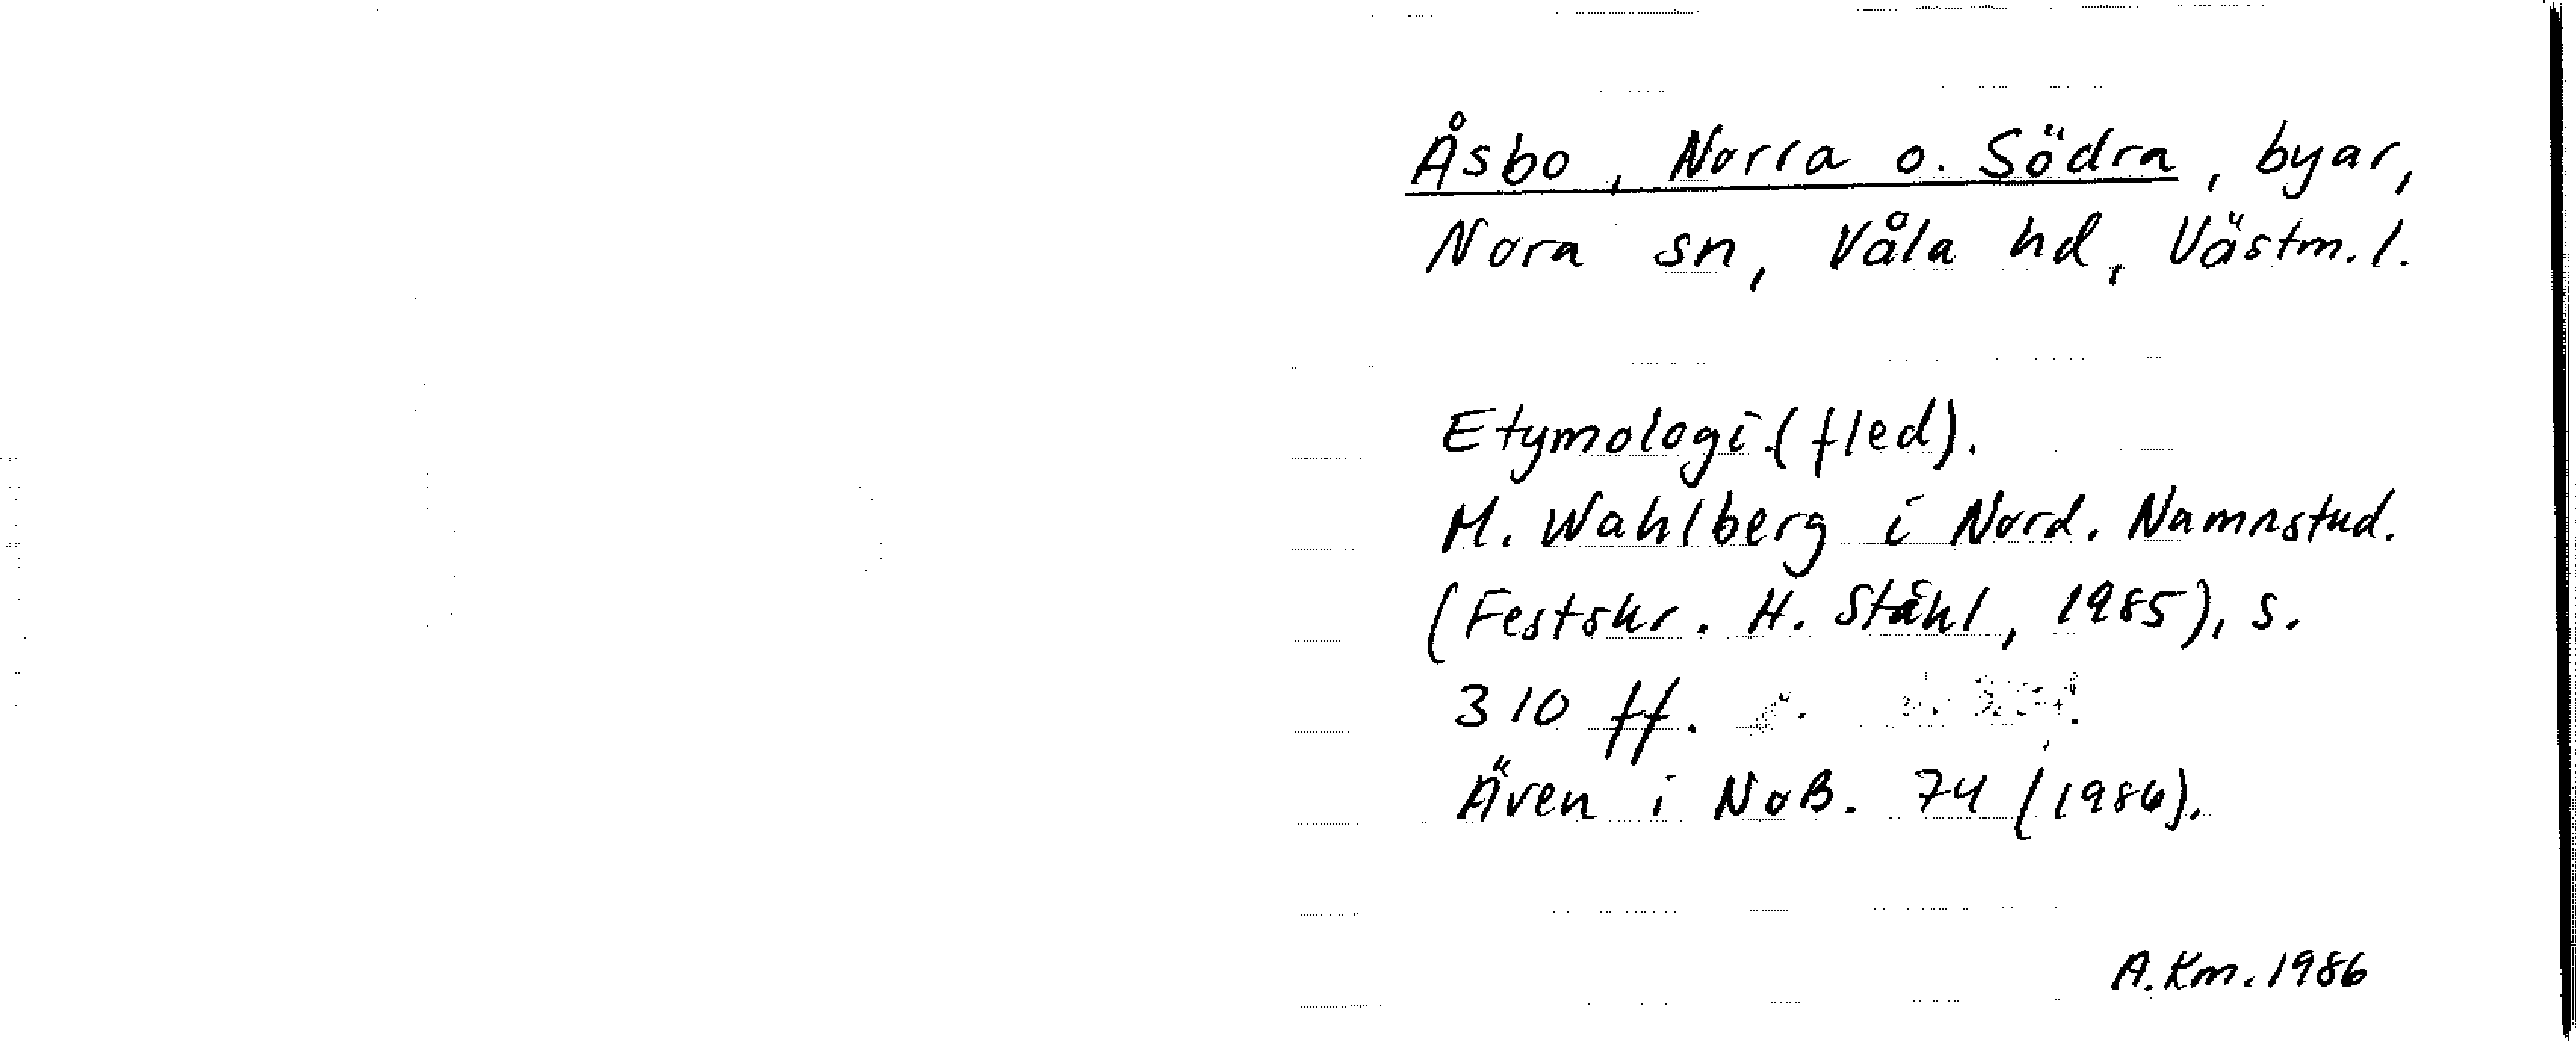 Åsbo, Norra o. Södra, byar,
Nora sn, Våla hd, Västm. l.
Etymologi. (fled).
M. Wahlberg i Nord. Namnstud.
(Festskr. H. Ståhl, 1985), s.
310 ff.
Även i NoB. 74 (1986).
A. Km. 1986